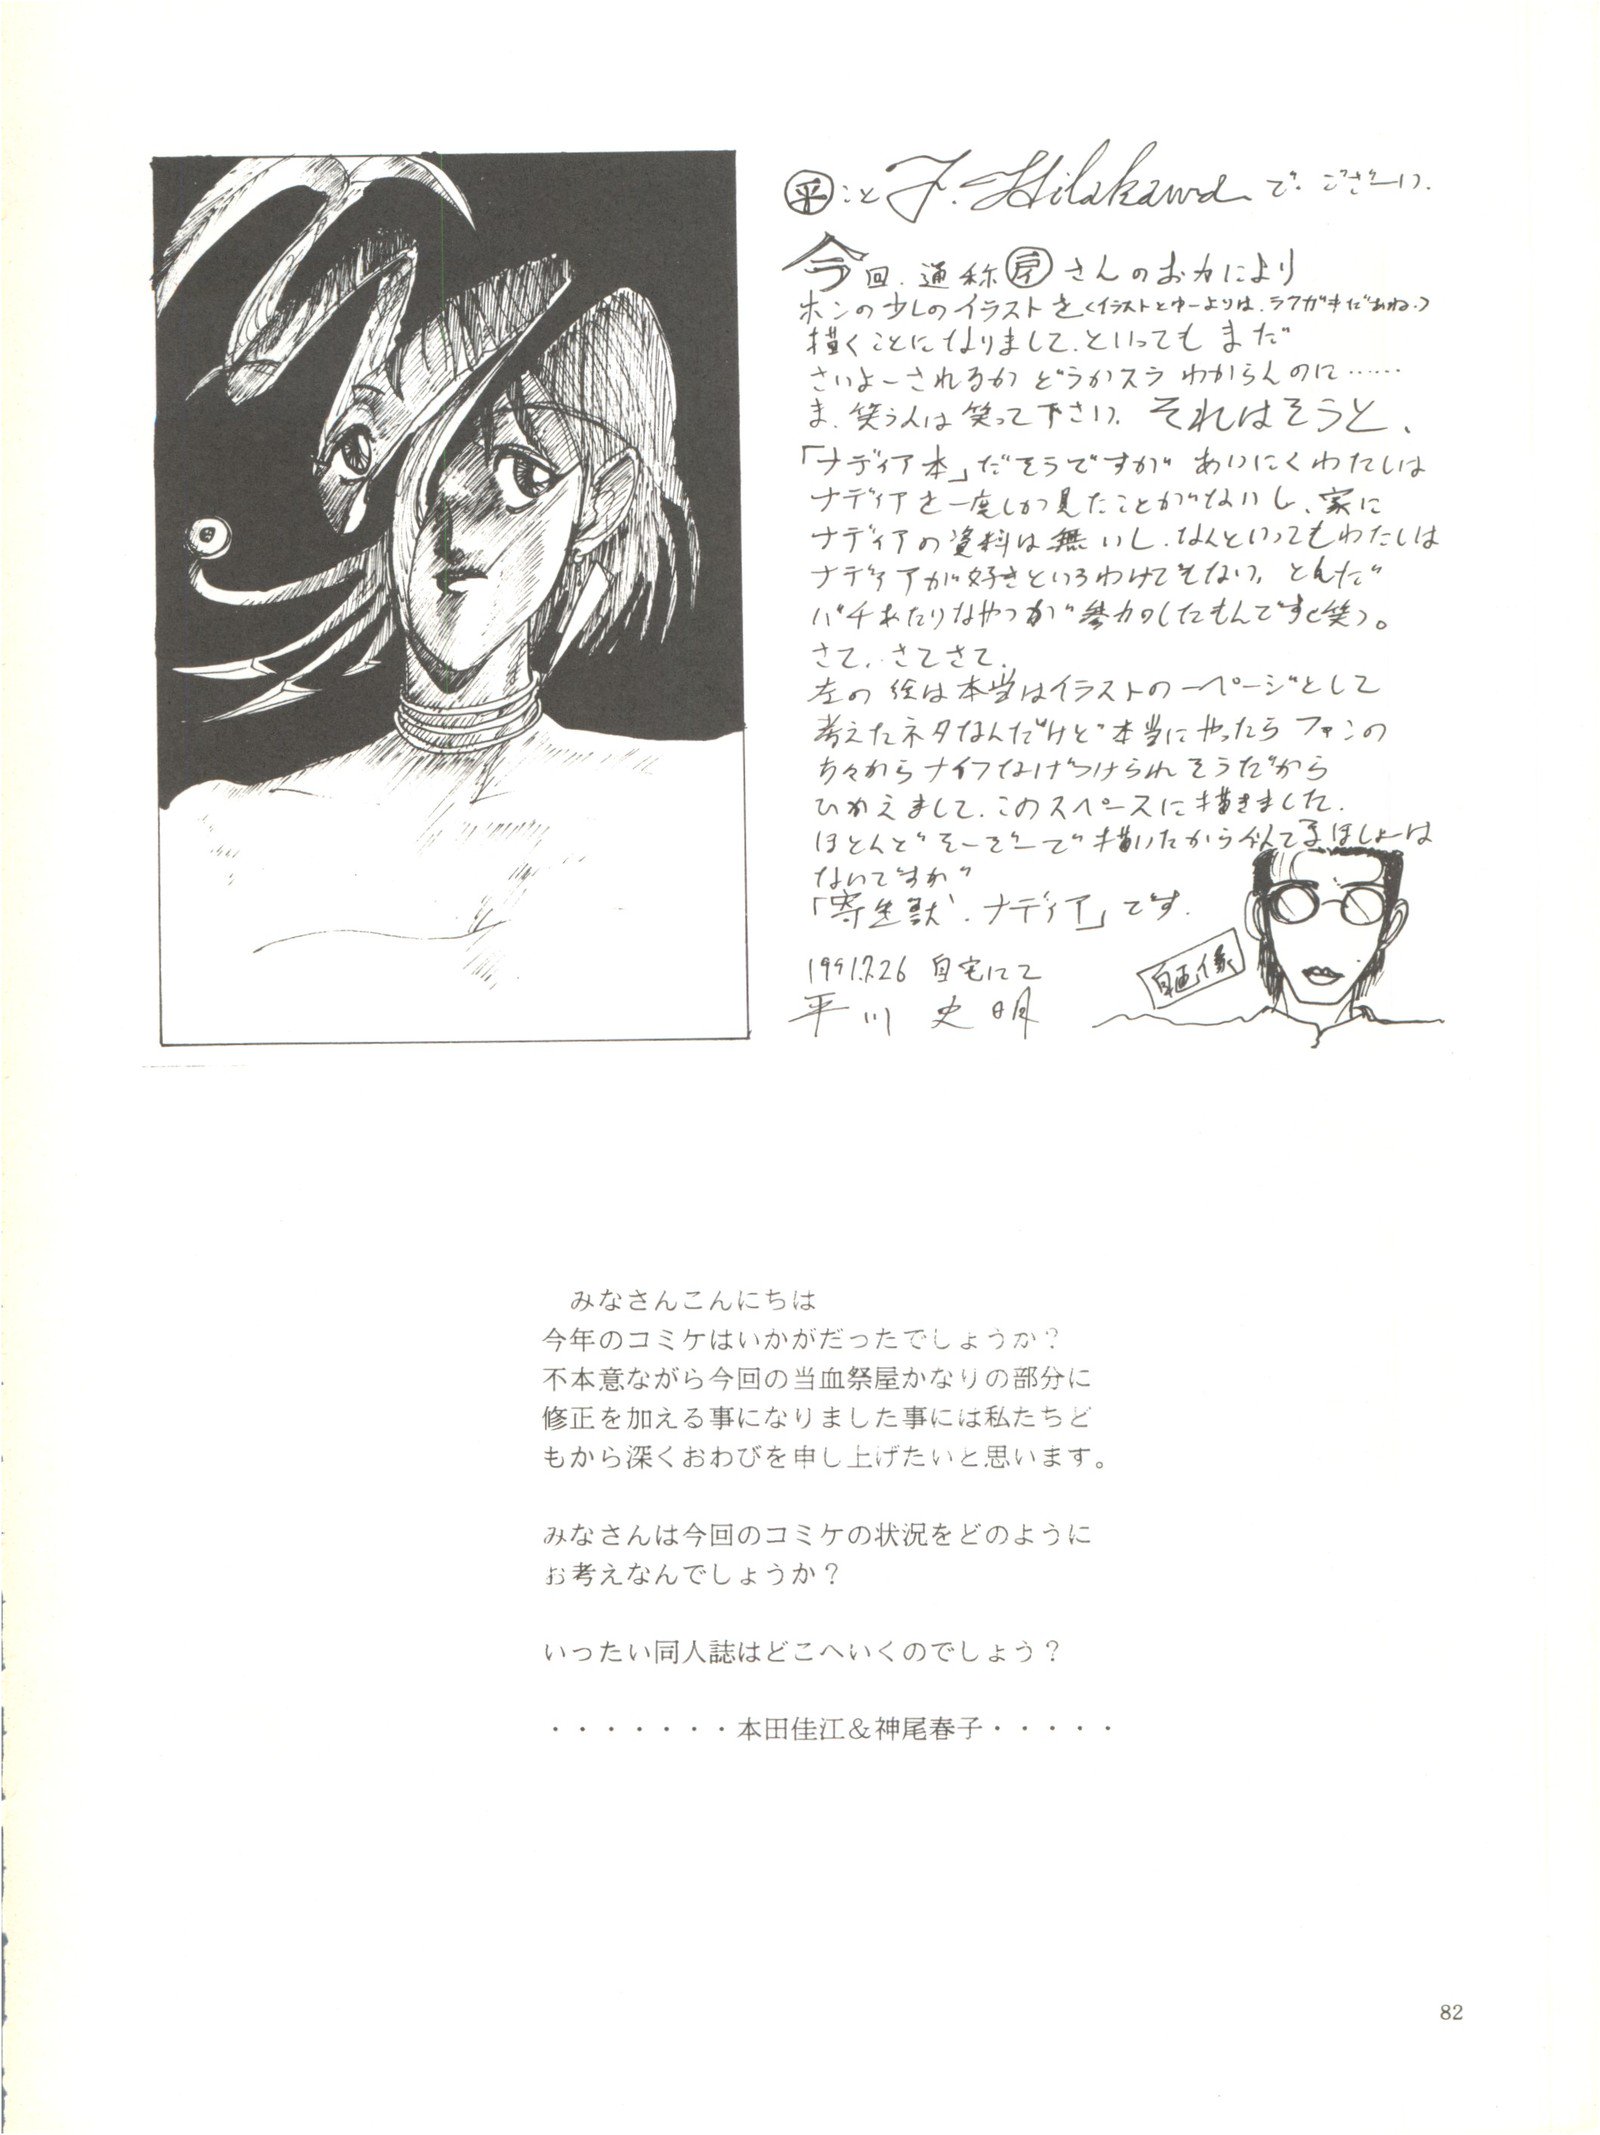 ㊉こと F. Hilakawa で ございー。
今回、通称 さんのお力により
ホンの少しのイラストを(イラストとゆーよりは、ラクガキだあね。)
描くことになりまして、といっても まだ
さいよーされるか どうかスラ わからんのに……
ま、笑う人は 笑って下さい。それはそうと、
「ナディア本」だそうですが あいにくわたしは
ナディアを一度しか見たことがないし、家に
ナディアの資料は無いし、なんといってもわたしは
ナディアが好きというわけでもない、とんだ
バチあたりなやつが参加したもんです(笑)。
さて、さてさて、
左の絵は本当はイラストの一ページとして
考えたネタなんだけど本当にやったらファンの
方々からナイフなげつけられそうだから
ひかえまして、このスペースに描きました。
ほとんどそーぞーで描いたから似てるほしょーは
ないですが
「寄生獣・ナディア」です。
1991.7.26 自宅にて
平川 史明
自画像
みなさんこんにちは
今年のコミケはいかがだったでしょうか?
不本意ながら今回の当血祭屋かなりの部分に
修正を加える事になりました事には私たちど
もから深くおわびを申し上げたいと思います。
みなさんは今回のコミケの状況をどのように
お考えなんでしょうか?
いったい同人誌はどこへいくのでしょう?
・・・・・・・本田佳江&神尾春子・・・・・
82